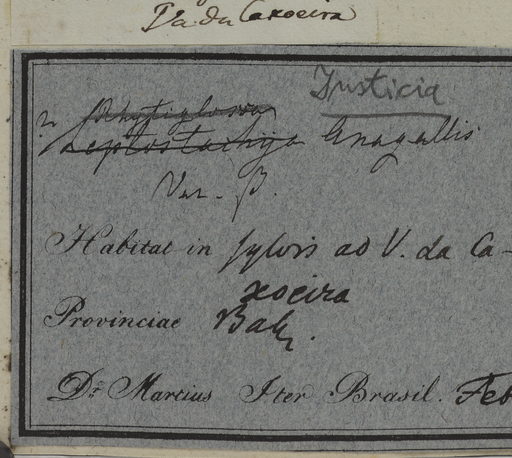 Va. da Caxoeira
Justicia
? Rhytiglossa
Leptostachya Anagallis
Var. β.
Habitat in sylvis ad V. da Ca-
xoeira
Provinciae Bah.
Dr. Martius Iter Brasil. Feb